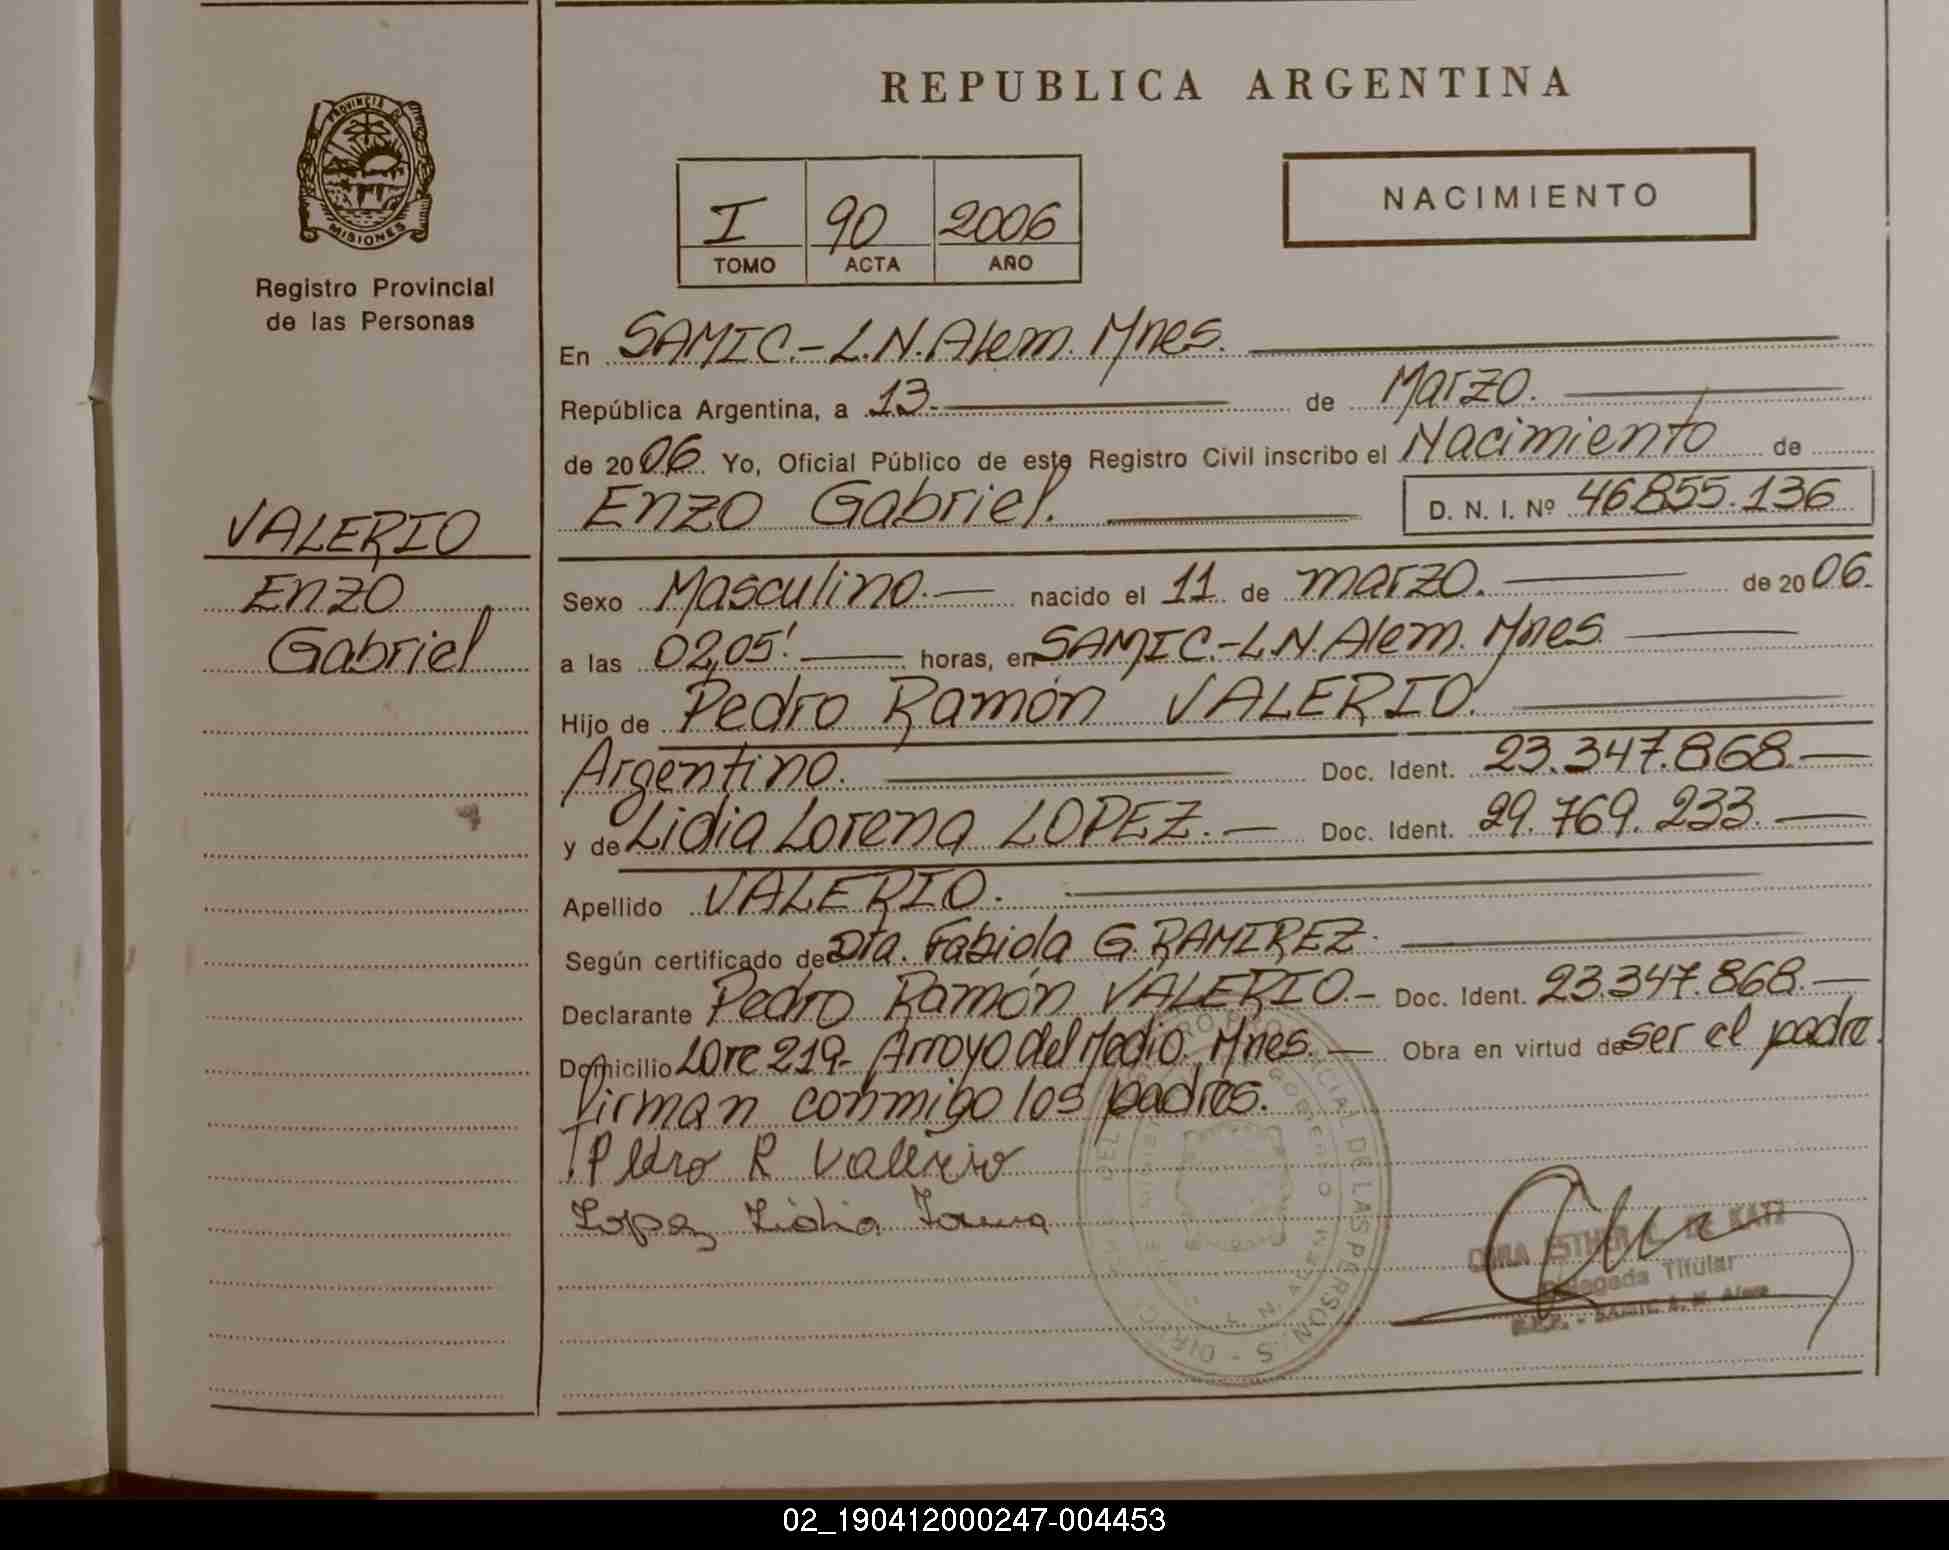 REPUBLICA ARGENTINA
PROVINCIA DE
MISIONES
Registro Provincial
de las Personas
I 90 2006
TOMO ACTA AÑO
NACIMIENTO
VALERIO
Enzo
Gabriel
En SAMIC.-L.N.Alem. Mnes.
República Argentina, a 13.- de Marzo.
de 2006 Yo, Oficial Público de este Registro Civil inscribo el Nacimiento de
Enzo Gabriel. D. N. I. Nº 46.855.136
Sexo Masculino.- nacido el 11 de marzo. de 2006.
a las 02,05' horas, en SAMIC.-L.N.Alem. Mnes.
Hijo de Pedro Ramón VALERIO.
Argentino. Doc. Ident. 23.347.868.-
y de Lidia Lorena LOPEZ.- Doc. Ident. 29.769.233.-
Apellido VALERIO.
Según certificado de Dra. Fabiola G. RAMIREZ.
Declarante Pedro Ramón VALERIO.- Doc. Ident. 23.347.868.-
Domicilio Lote 219- Arroyo del Medio. Mnes.- Obra en virtud de ser el padre.
Firman conmigo los padres.
Pedro R Valerio
Lopez Lidia Lorena
DE LAS PERSONAS
L. N. ALEM
ESTHER DE KATZ
Delegada Titular
SAMIC L. N. Alem
02_190412000247-004453